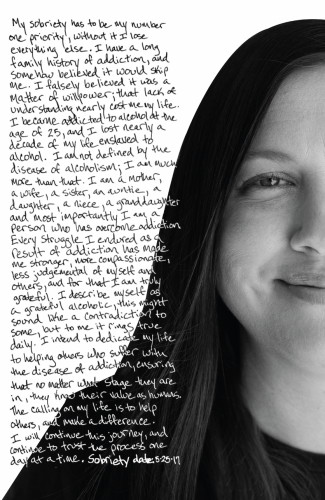 My sobriety has to be my number
one priority, without it I lose
everything else. I have a long
family history of addiction, and
somehow believed it would skip
me. I falsely believed it was a
matter of willpower; that lack of
understanding nearly cost me my life.
I became addicted to alcohol at the
age of 25, and I lost nearly a
decade of my life enslaved to
alcohol. I am not defined by the
disease of alcoholism; I am much
more than that. I am a mother,
a wife, a sister, an auntie, a
daughter, a niece, a granddaughter
and most importantly I am a
person who has overcome addiction
Every struggle I endured as a
result of addiction has made
me stronger, more compassionate,
less judgemental of myself and
others, and for that I am truly
grateful. I describe myself as
a grateful alcoholic, this might
sound like a contradiction to
some, but to me it rings true
daily. I intend to dedicate my life
to helping others who suffer with
the disease of addiction, ensuring
that no matter what stage they are
in, they know their value as humans.
The calling on my life is to help
others, and make a difference.
I will continue this journey, and
continue to trust the process one
day at a time. Sobriety date: 5-25-17